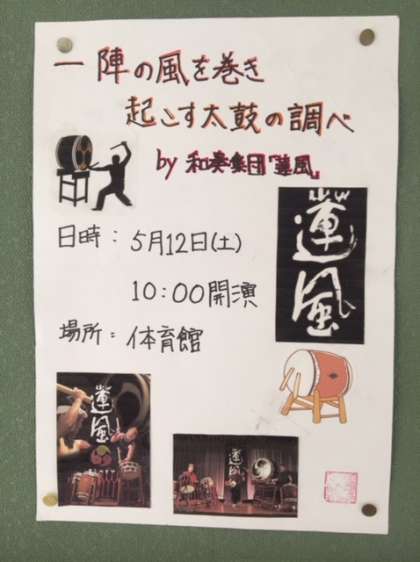 一陣の風を巻き
起こす太鼓の調べ
by 和奏集団「蓮風」
日時: 5月12日(土)
10:00開演
場所: 体育館
蓮風
蓮風
蓮風